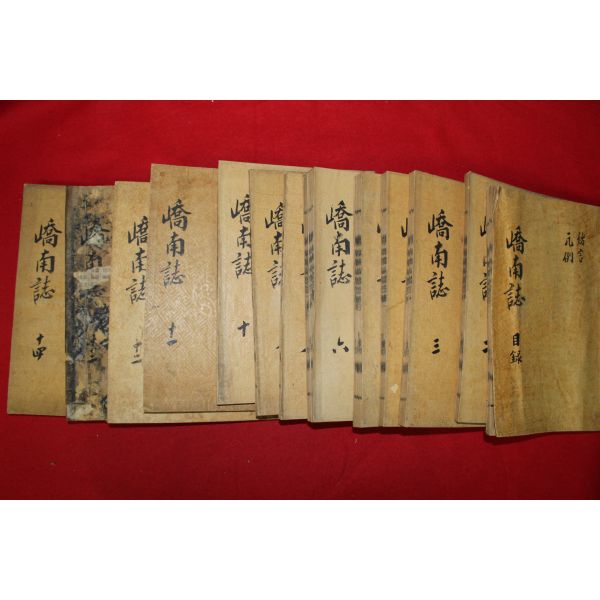 緖言
凡例
嶠南誌 目錄
二
嶠南誌 三
嶠南誌 六
嶠南誌
嶠南誌 十
嶠南誌 十一
嶠南誌 十二
嶠南
嶠南誌 十四